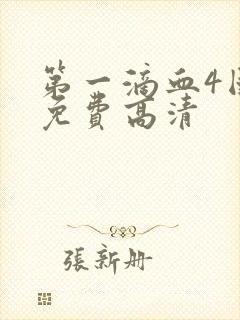 第一滴血4国
免費高清
張新册